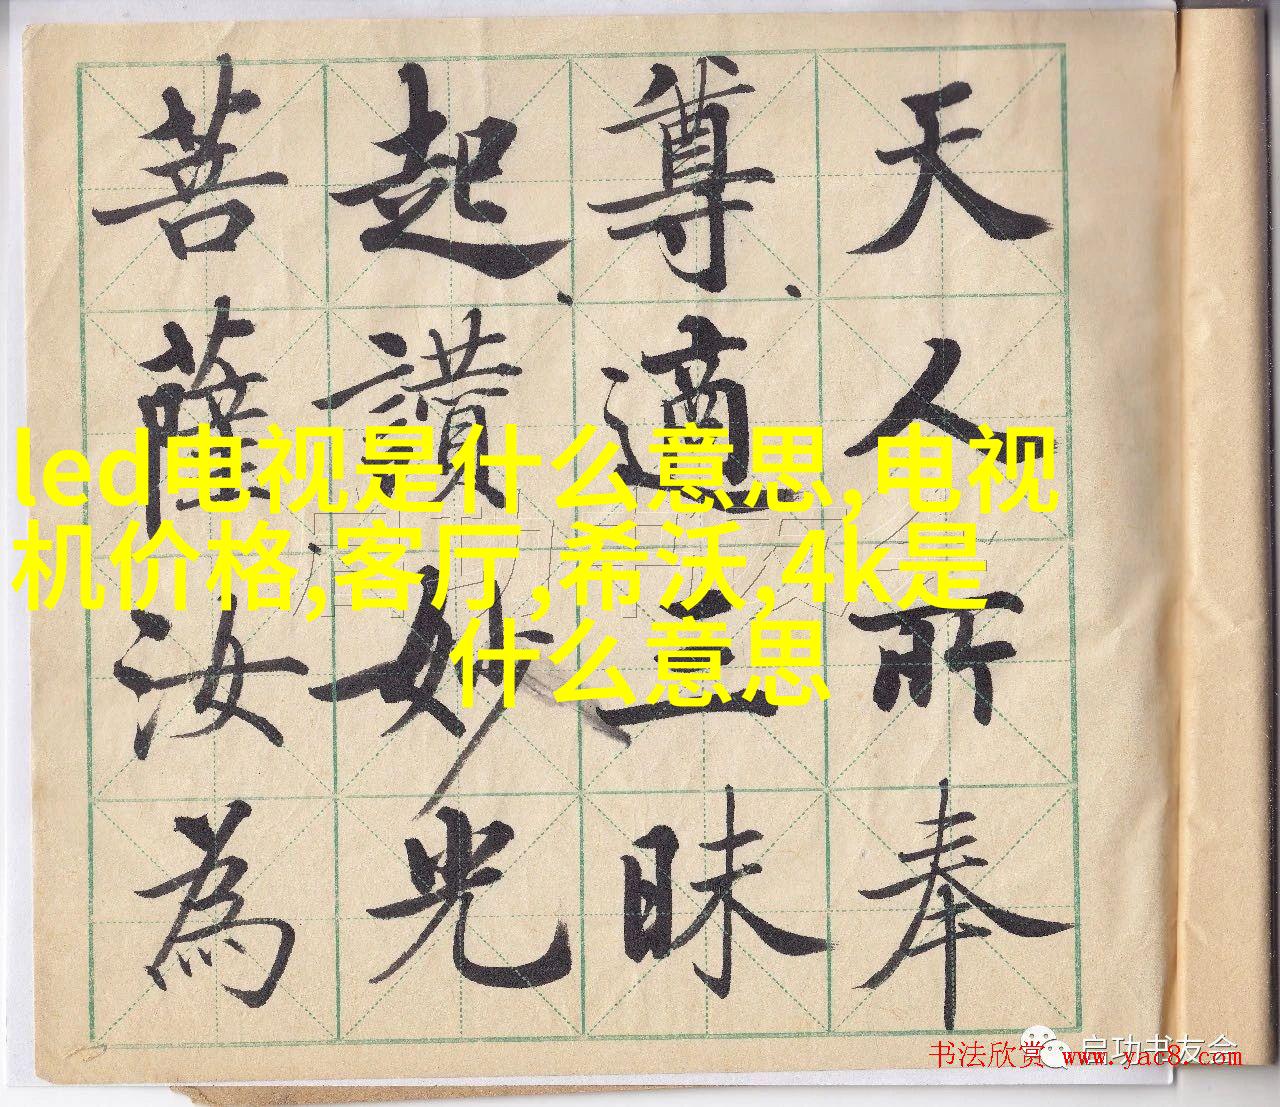 天人所奉
尊適三昧
起讃妙光
菩薩汝為
led电视是什么意思,电视
机价格,客厅,希沃,4k是
什么意思
启功书友会
书法欣赏 www.yac8.com